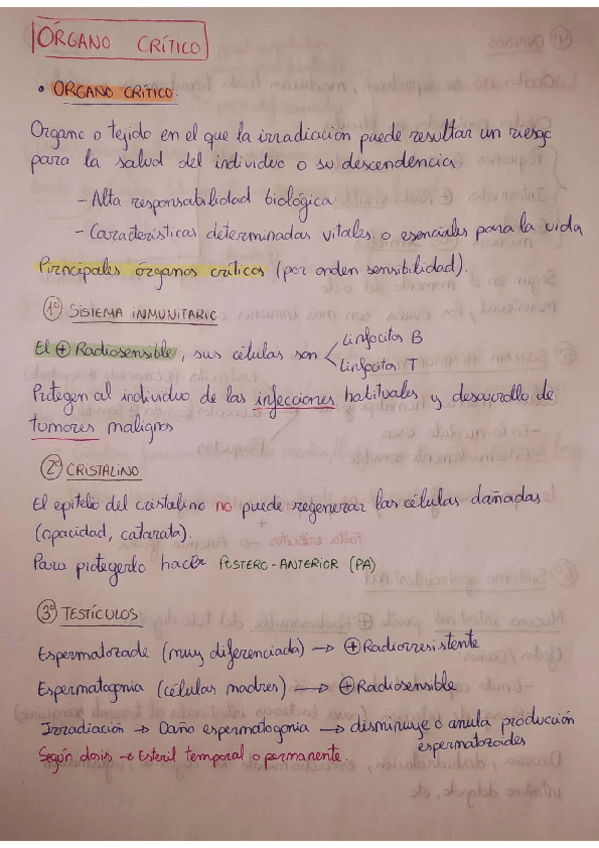 ÓRGANO CRÍTICO
• ORGANO CRÍTICO
Organo o tejido en el que la irradiación puede resultar un riesgo
para la salud del individuo o su descendencia
- Alta responsabilidad biológica
- Características determinadas vitales o esenciales para la vida
Principales órganos críticos (por orden sensibilidad).
1º SISTEMA INMUNITARIO
El ⊕ Radiosensible, sus células son < Linfocitos B
Linfocitos T
Protegen al individuo de las infecciones habituales y desarrollo de
tumores malignos
2º CRISTALINO
El epitelio del cristalino no puede regenerar las células dañadas
(opacidad, catarata).
Para protegerlo hacer POSTERO-ANTERIOR (PA)
3º TESTÍCULOS
Espermatozoide (muy diferenciada) → ⊕ Radiorresistente
Espermatogonia (células madres) → ⊕ Radiosensible
Irradiación → Daño espermatogonia → disminuye o anula producción
espermatozoides
Según dosis → Esteril temporal o permanente.